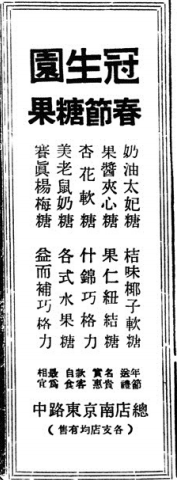 冠生園
春節糖果
奶油太妃糖
果醬夾心糖
杏花軟糖
美老鼠奶糖
賽真楊梅糖
桔味椰子軟糖
果仁紐結糖
什錦巧格力
各式水果糖
益而補巧格力
年節送禮
名貴實惠
自食款客
最為相宜
總店南京東路中
(各支店均有售)